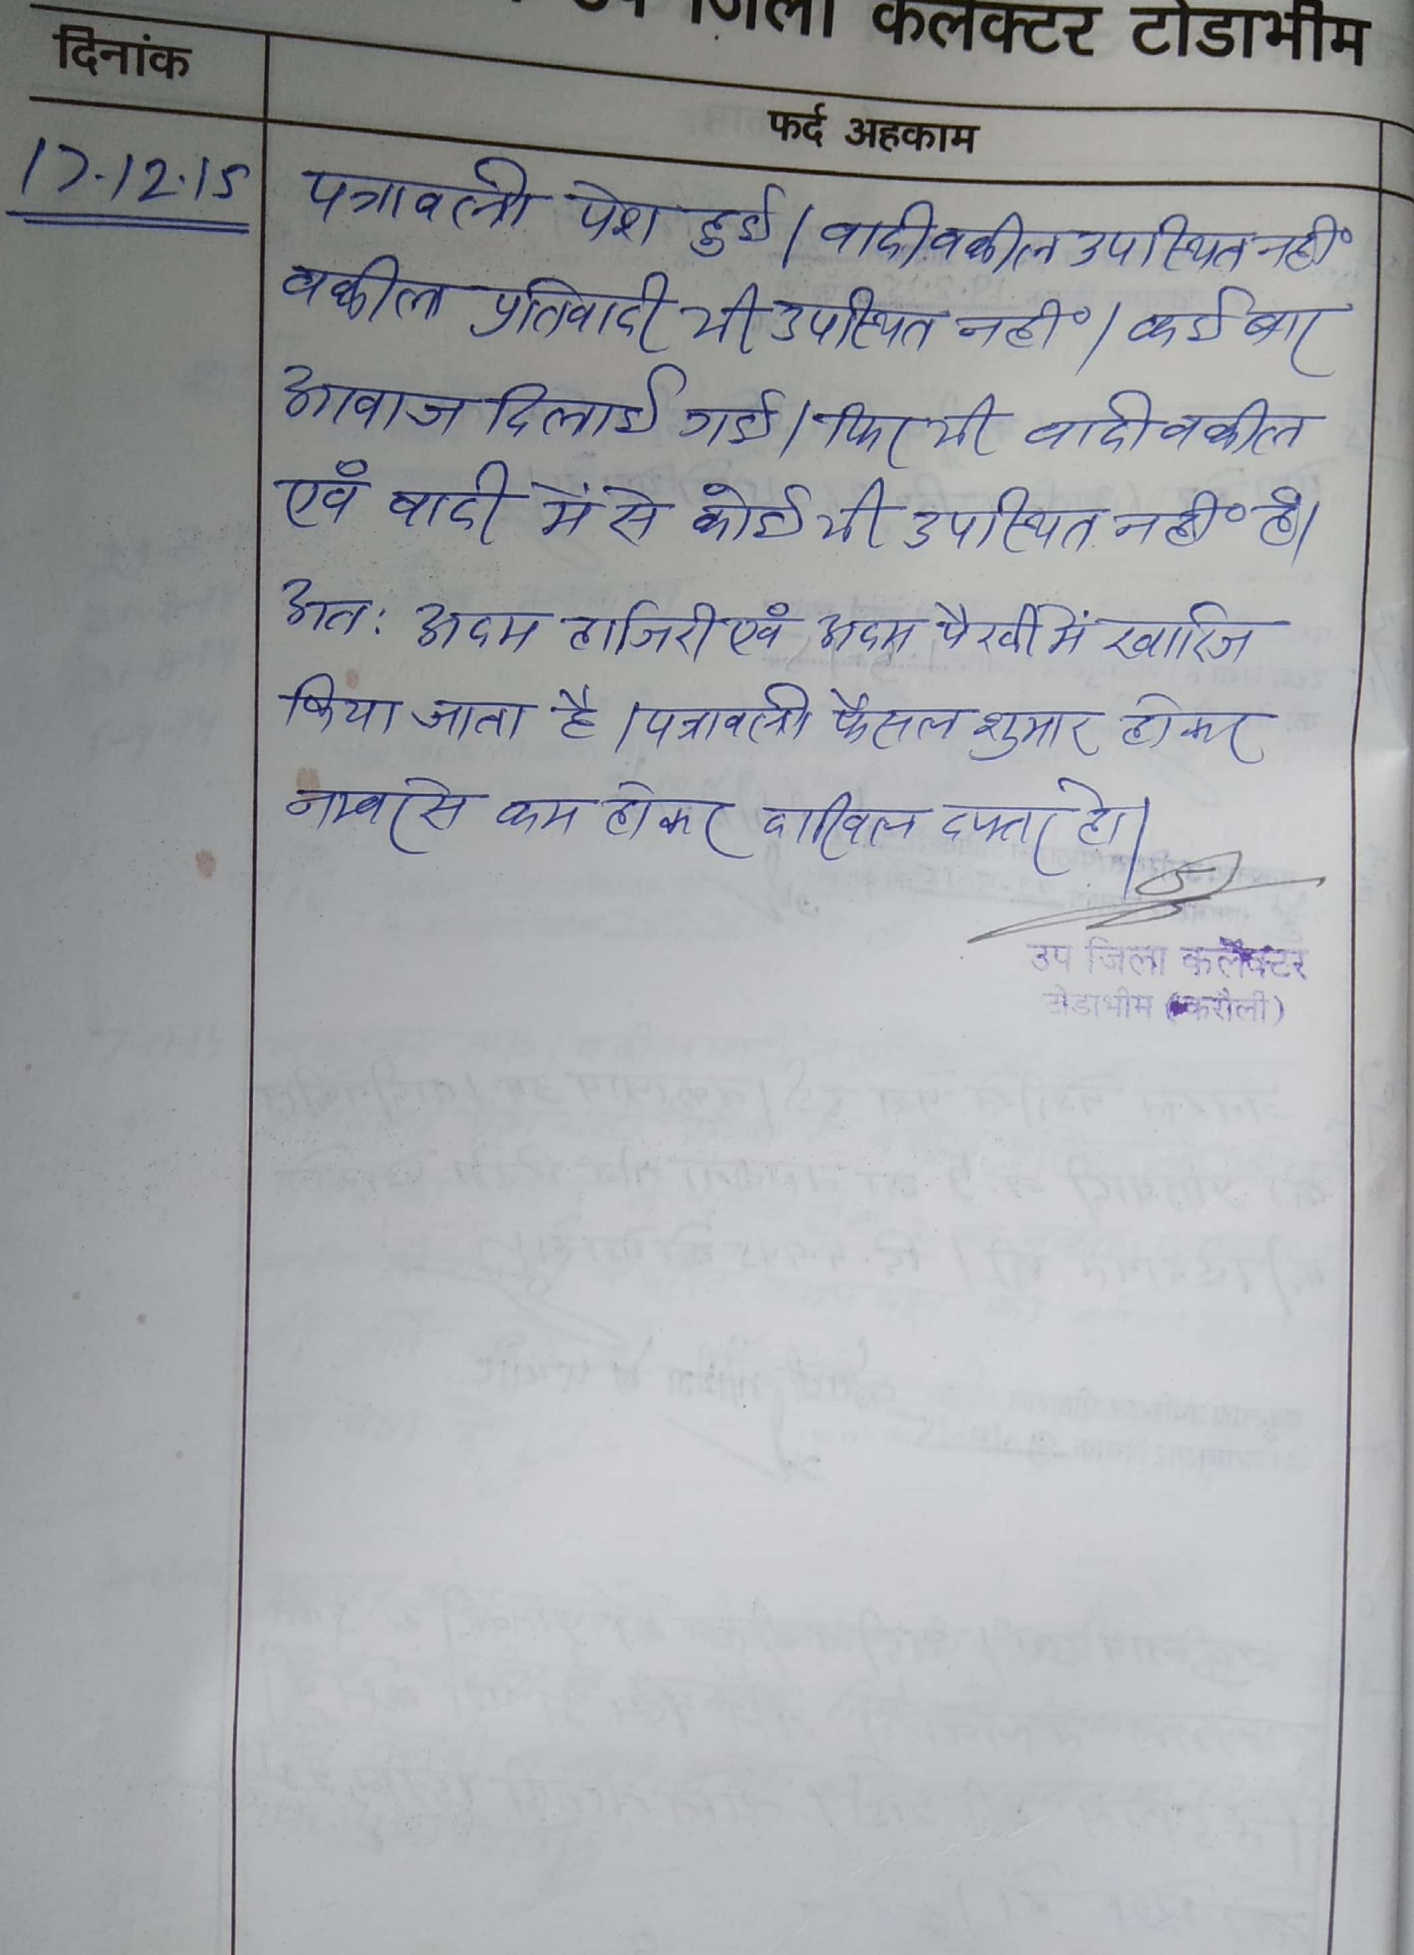 उप जिला कलेक्टर टोडाभीम
दिनांक
फर्द अहकाम
17.12.15
पत्रावली पेश हुई। वादी वकील उपस्थित नहीं
वकील प्रतिवादी भी उपस्थित नहीं। कई बार
आवाज दिलाई गई। फिर भी वादी वकील
एवं वादी में से कोई भी उपस्थित नहीं है।
अत: अदम हाजिरी एवं अदम पैरवी में खारिज
किया जाता है। पत्रावली फैसल शुमार होकर
नम्बर से कम होकर दाखिल दफ्तर हो।
उप जिला कलेक्टर
टोडाभीम (करौली)